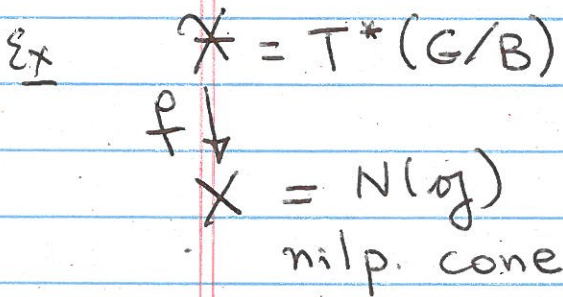 Ex X̃ = T*(G/B)
f ↓
X = N(𝔤)
nilp. cone